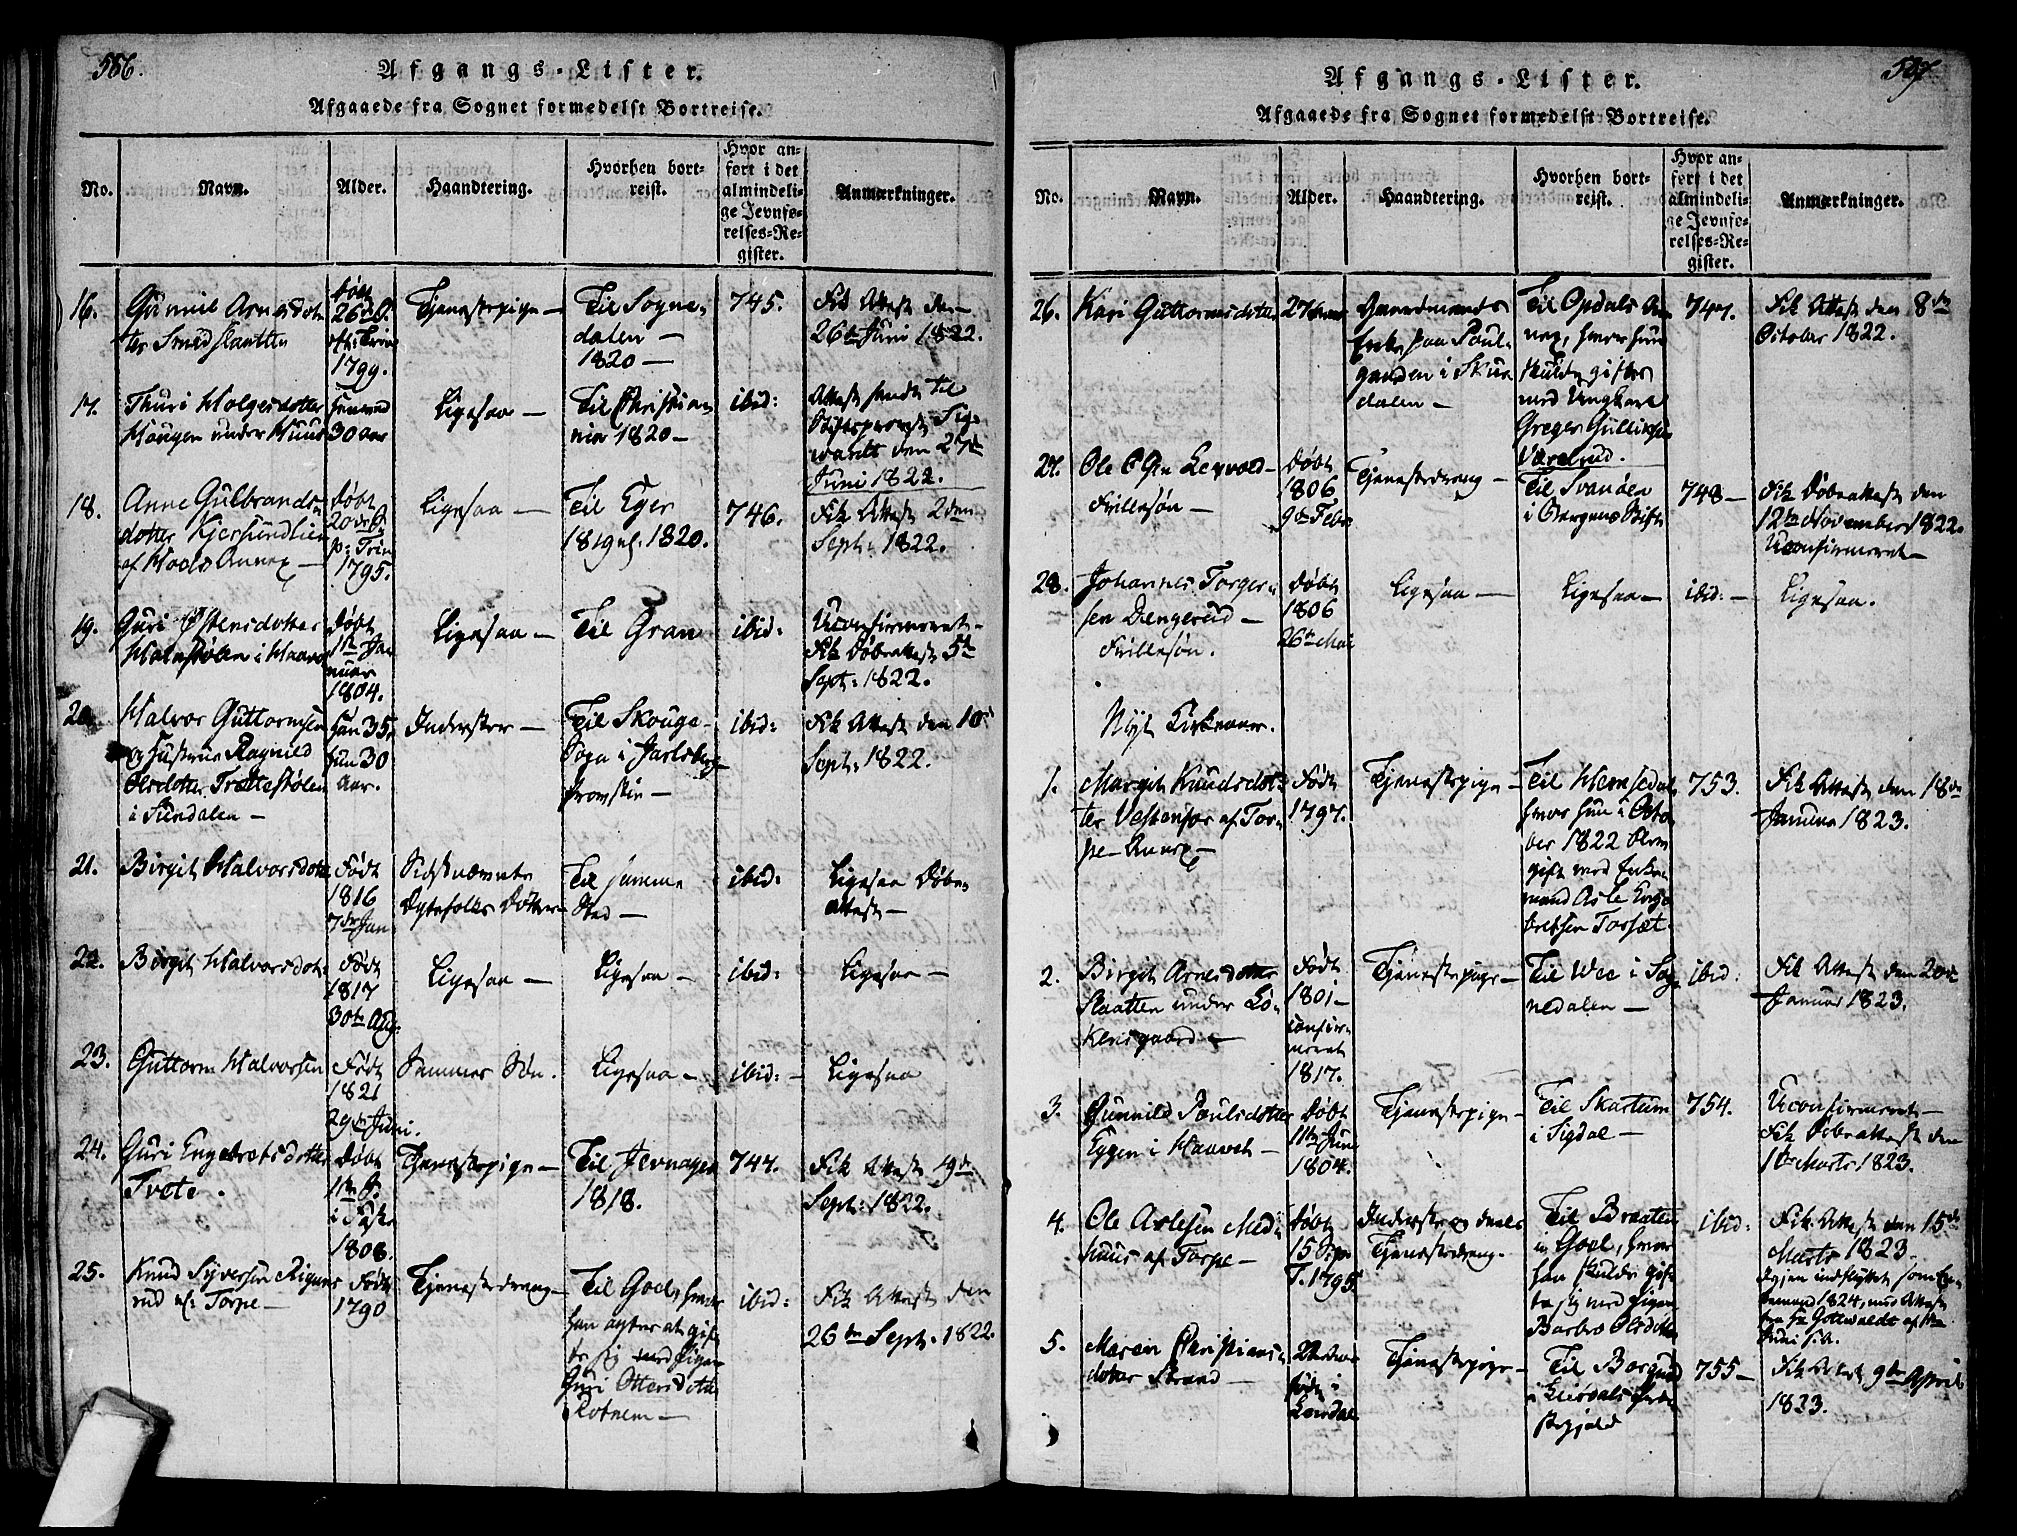 586.
Afgangs-Lister.
Afgaaede fra Sognet formedelst Bortreise.
No.
Navn.
Alder.
Haandtering.
Hvorhen bort-
reist.
Hvor an-
ført i det
almindeli-
ge Jevnfø-
relses-Re-
gister.
Anmærkninger.
16.
Arnesdot
ter
døbt
1799.
Tjenestepige —
Til Sogne-
dalen —
1820 —
745.
Fik Attest den
26de Juni 1822.
17.
Thuri Holgersdotter
Haugen under Huus
30 aar
Ligesaa —
Til Christian
nia 1820 —
ibid:
Attest sendt til
den 27de
Juni 1822.
18.
Anne Gulbrands
dotter
af Hools Annex —
Døbt
p: Trin
1795.
Ligesaa —
Til Eger
1820.
746.
Fik Attest 2den
Sept: 1822.
19.
Guri Østensdotter
døbt
1te Ja
nuar
1804.
Ligesaa —
Til Gran
ibid:
Uconfirmeret —
Fik Døbeattest 5te
Sept: 1822.
20.
Halvor Guttormsen
og Hustrue Ragnild
Olsdotter Trættestølen
i Sundalen —
han 35,
hun 30
Aar.
Inderster —
Til Skouge
Sogn i Jarlsberg
Provstie —
ibid:
Fik Attest den 10de
Sept: 1822.
21.
Birgit Halvorsdotter
Født
1816
7de Jan
Sidstnævnte
Døtter
Til samme
Sted —
ibid:
Ligesaa Døbe-
attest —
22.
Birgit Halvorsdot:
Født
1817
30te Aug:
Ligesaa —
Ligesaa —
ibid:
Ligesaa —
23.
Guttorm Halvorsen
Født
1821
29de Juni.
Sammes Søn.
Ligesaa —
ibid: —
Ligesaa
24.
Guri Engebretsdotter
Tveto.
Døbt
1808.
Tjenestepige —
Til Jevnager
1818.
747.
Fik Attest 19de
Sept: 1822.
25.
Knud Syversen
rud af Torpe —
Født
1790
Tjenestedreng —
Til Gool, hvor
han agter at gif
te sig med Pigen
Guri Ottersdotter
Rotnem —
ibid:
Fik Attest den
26de Sept: 1822.
587.
Afgangs-Lister.
Afgaaede fra Sognet formedelst Bortreise.
No.
Navn.
Alder.
Haandtering.
Hvorhen bort-
reist.
Hvor an-
ført i det
almindeli-
ge Jevnfø-
relses-Re-
gister.
Anmærkninger.
26.
Kari Guttormsdotter
27
Gaardmands
Enke paa Poul-
gaarden i Skur
dalen —
Til Opdals An
nex, hvor hun
skulde giftes
med Ungkarl
Greger Gulliksen
747.
Fik Attest den 8de
October 1822.
27.
Frillesøn —
Døbt
1806
9de Febr
Tjenestedreng —
Til Svanøen
i Bergens Stift
748 —
Fik Døbeattest den
12te November 1822.
Uconfirmeret —
28.
Johannes Torger-
sen Dengerud —
Frillesøn.
Døbt
1806
26de Mai
Ligesaa —
Ligesaa —
ibid: —
Ligesaa.
Nyt Kirkeaar.
1.
Margit Knudsdot-
ter af Tor-
pe Annex —
Født
1797.
Tjenestepige —
Til Hemsedal
hvor hun i Octo
ber 1822 blev
gift med Enke
mand Asle Enge
bretsen Torset.
753.
Fik Attest den 18de
Januar 1823.
2.
Birgit Arnesdotter
Slaatten under Lø-
kensgaard —
Født
1801 —
confir-
meret
1817.
Tjenestepige —
Til Wee i Sog
nedalen —
ibid:
Fik Attest den 20de
Januar 1823.
3.
Gunnild Paulsdotter
Eggen i Haavet —
Døbt
11te Juni
1804.
Tjenestepige —
Til Skartum
i Sigdal —
754.
Uconfirmeret —
Fik Døbeattest den
1te Marts 1823.
4.
Ole Aslesen Med-
huus af Torpe —
døbt
15
T. 1795
Inderste og deels
Tjenestedreng.
Til Braaten
i Goel, hvor
han skulde gif
te sig med Pigen
Barbro Olsdotter
ibid:
Fik Attest den 15de
Marts 1823.
Igjen indflyttet som En-
kemand 1824,
5.
Maren Christians-
dotter Strand —
født i
Leirdal
Tjenestepige —
Til Borgund
i Leirdals Præste
gjeld
755 —
Fik Attest 9de April
1823.